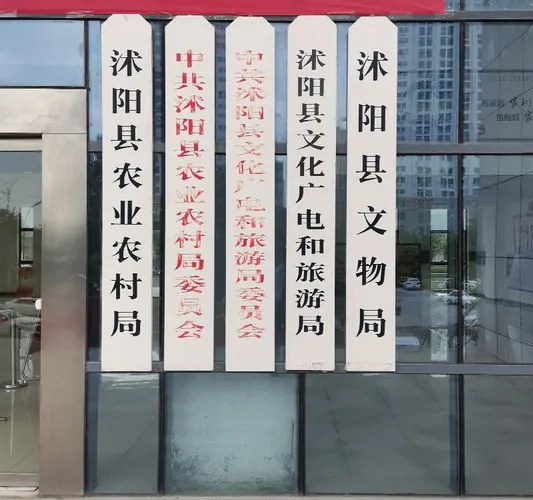 沭阳县农业农村局
中共沭阳县农业农村局委员会
中共沭阳县文化广电和旅游局委员会
沭阳县文化广电和旅游局
沭阳县文物局